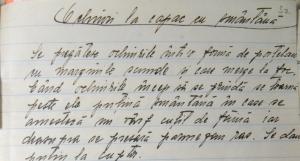 Ochiuri la capac cu smântână
Se pregătesc ochiurile într'o formă de porțelan
cu marginile scunde și care merge la foc
când ochiurile încep să se prindă se toarnă
peste ele puțină smântână în care se
amestecă un vârf cuțit de făină iar
deasupra se presară parmezan ras. Se dau
puțin la cuptor.